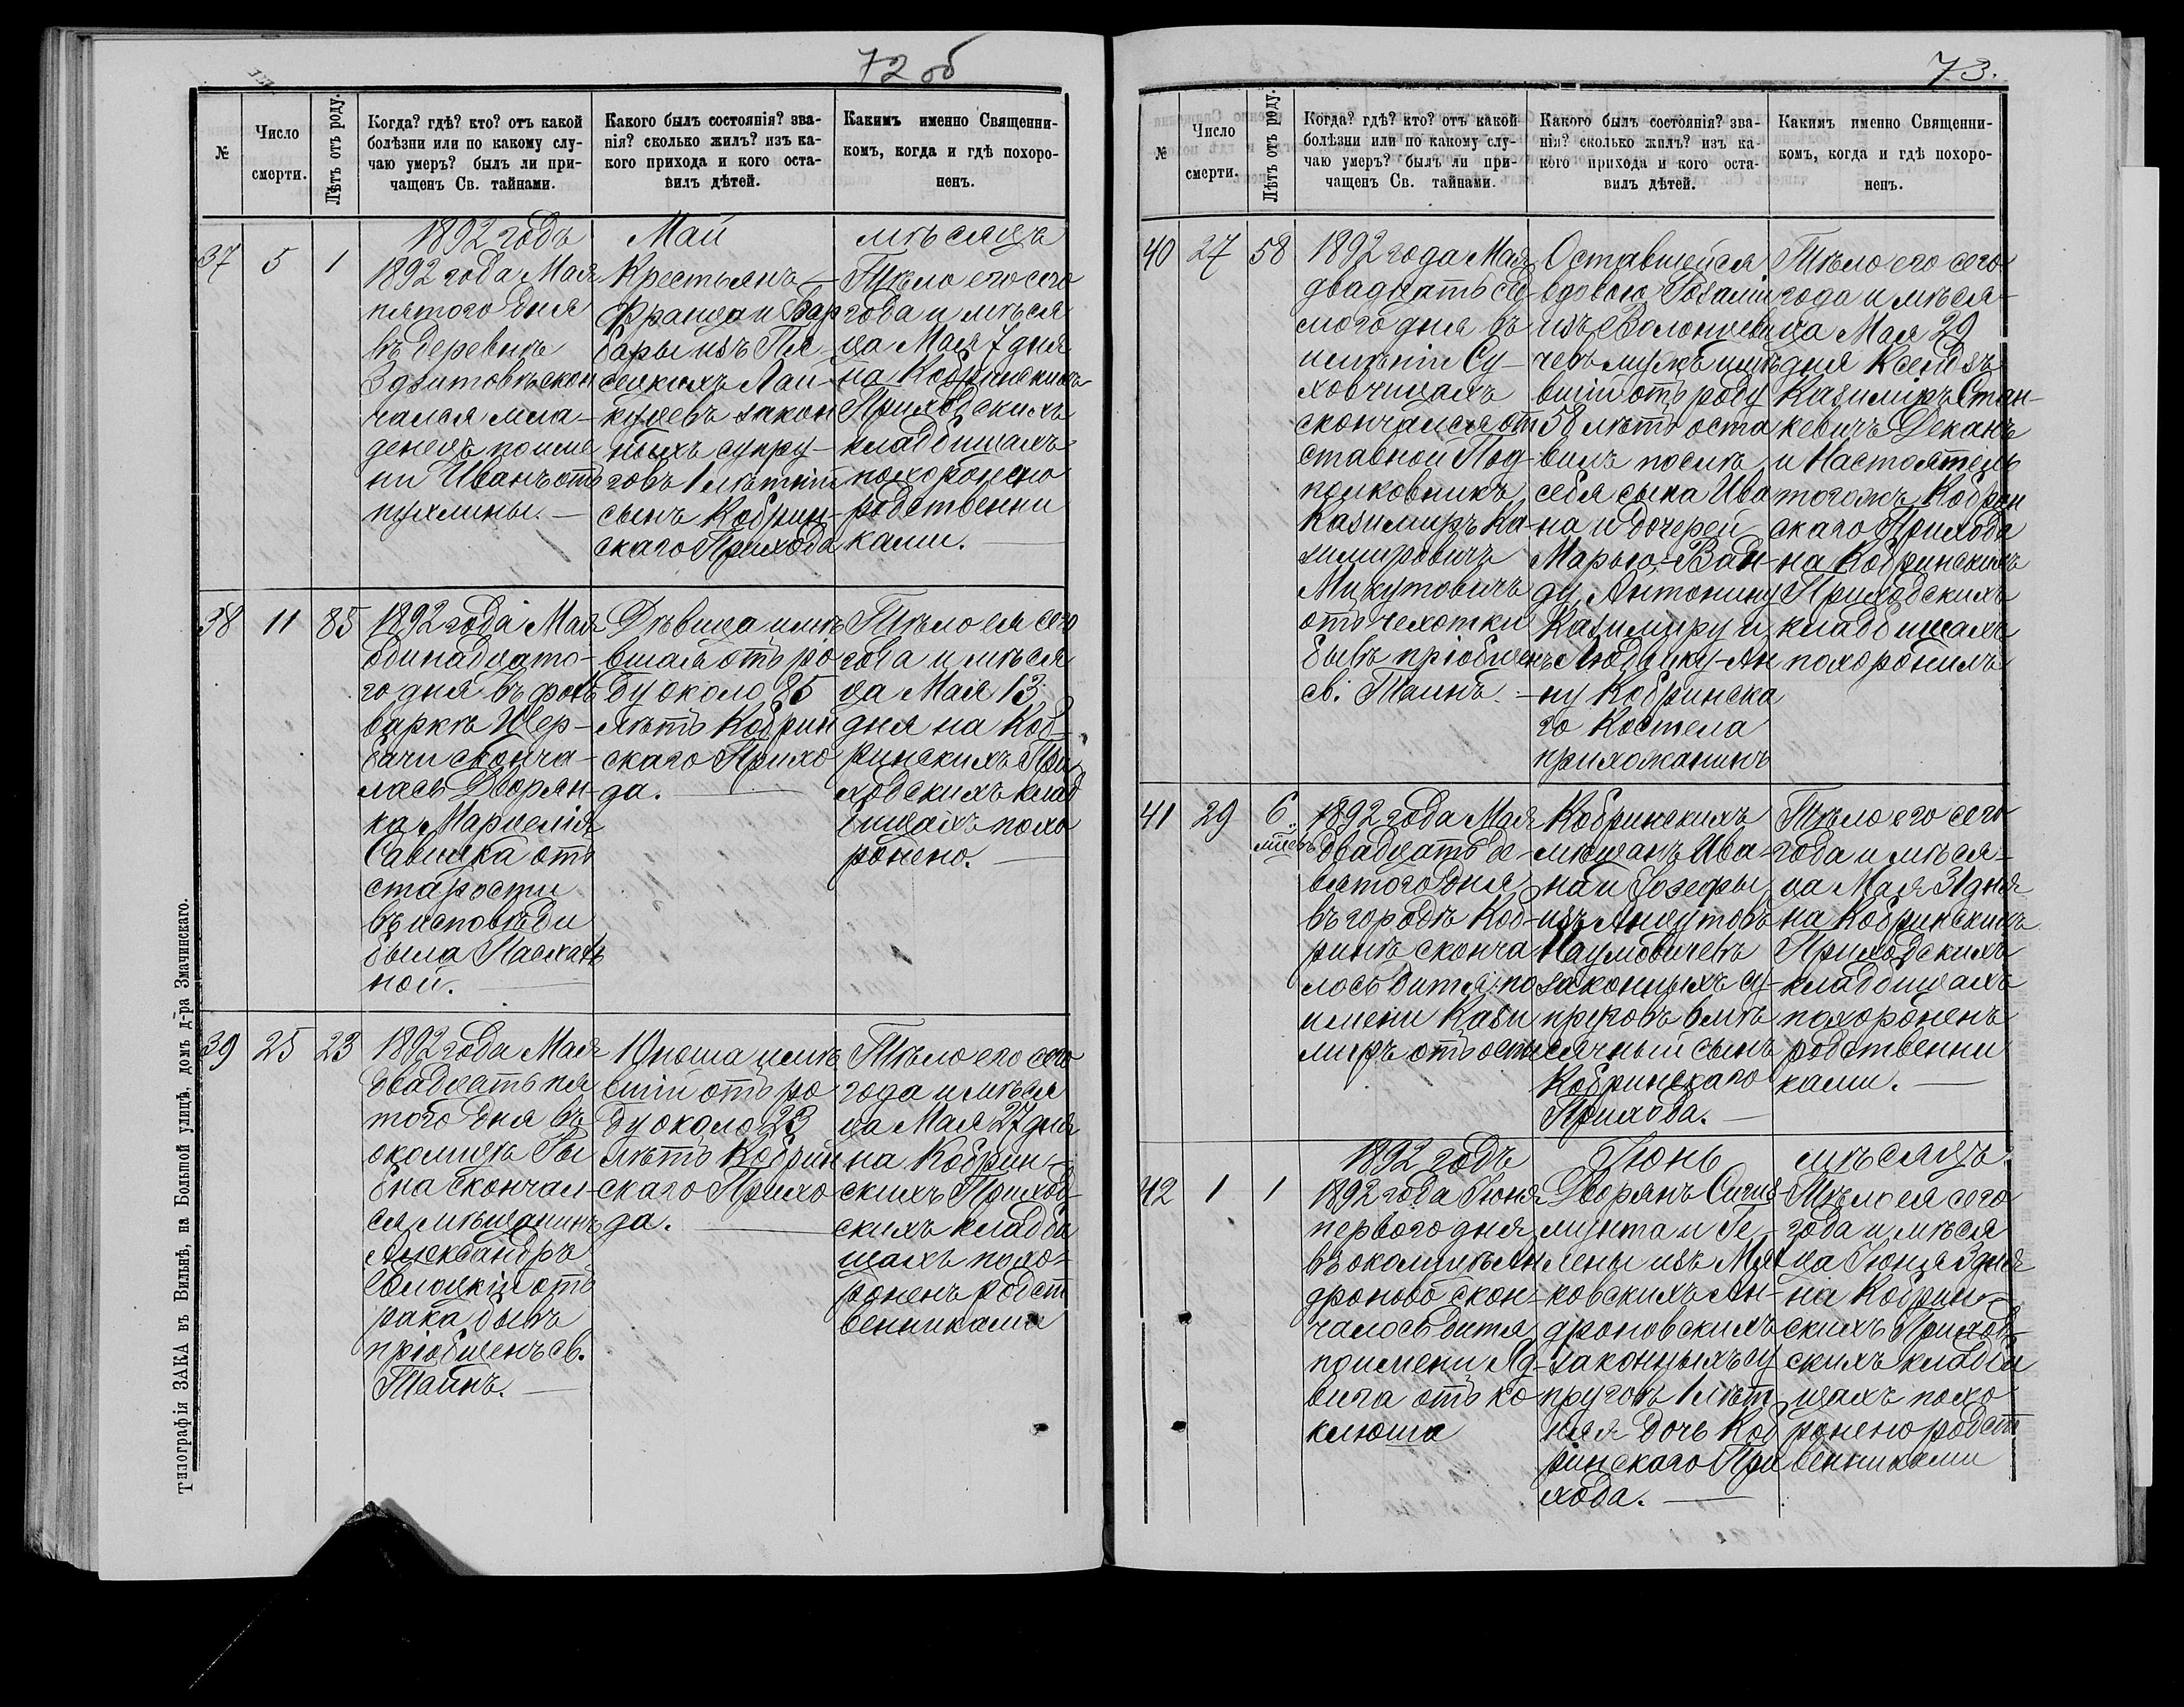 72 об
№
Число
смерти.
Лѣтъ отъ роду.
Когда? гдѣ? кто? отъ какой
болѣзни или по какому слу-
чаю умеръ? былъ ли при-
чащенъ Св. тайнами.
Какого былъ состоянія? зва-
нія? сколько жилъ? изъ ка-
кого прихода и кого оста-
вилъ дѣтей.
Какимъ именно Священни-
комъ, когда и гдѣ похоро-
ненъ.
1892 годъ Май мѣсяцъ
37 5 1
1892 года Мая
пятого дня
въ деревнѣ
Здзитовѣ скон
чался мла-
денецъ по име
ни Иванъ отъ
пухлины. —
Крестьянъ —
Франца и Вар
бары изъ
кихъ
закон
ныхъ супру-
говъ 1 лѣтній
сынъ Кобрин-
скаго Прихода
Тѣло его сего
года и мѣся
ца Мая 7 дня
на Кобринскихъ
Приходскихъ
кладбищахъ
похоронено
родственни
ками. —
38 11 85
1892 года Мая
одинадцато-
го дня въ фоль
варкѣ Щер-
бачи сконча-
лась Дворян-
ка Марцелія
Савицка отъ
старости
въ исповѣди
была Пасхаль
ной. —
Дѣвица имѣ
вшая отъ ро
ду около 85
лѣтъ Кобрин
скаго Прихо
да. —
Тѣло ея сего
года и мѣся
ца Мая 13
дня на Коб-
ринскихъ При
ходскихъ клад
бищахъ похо
ронено. —
39 25 23
1892 года Мая
двадцать пя
того дня въ
околицѣ
скончал-
ся мѣщанинъ
Александръ
отъ
рака бывъ
пріобщенъ св.
Таинъ. —
Юноша имѣ
вшій отъ ро
ду около 23
лѣтъ Кобрин
скаго Прихо
да. —
Тѣло его сего
года и мѣся
ца Мая 27 дня
на Кобрин-
скихъ Приход-
скихъ кладби
щахъ похо-
роненъ родст
венниками
Типографія ЗАКА въ Вильнѣ, на Большой улицѣ, домъ д-ра Змачинскаго.
73.
№
Число
смерти.
Лѣтъ отъ роду.
Когда? гдѣ? кто? отъ какой
болѣзни или по какому слу-
чаю умеръ? былъ ли при-
чащенъ Св. тайнами.
Какого былъ состоянія? зва-
нія? сколько жилъ? изъ ка-
кого прихода и кого оста-
вилъ дѣтей.
Какимъ именно Священни-
комъ, когда и гдѣ похоро-
ненъ.
40 27 58
1892 года Мая
двадцать сед-
мого дня въ
имѣніи Су-
ховчицахъ
скончался от
ставной Под-
полковникъ
Казимиръ Ка-
зимировичъ
Микутовичъ
отъ чехотки
бывъ пріобщенъ
св. Таинъ. —
Оставшейся
вдовою Розаліи
изъ
мужъ имѣ
вшій отъ роду
58 лѣтъ оста
вилъ послѣ
себя сына Ива
на и дочерей
Марью-Ван-
ду, Антонину,
Казимиру и
Людвику-Ан
ну Кобринска
го Костела
прихожанинъ
Тѣло его сего
года и мѣся-
ца Мая 29
дня Ксендзъ
Казиміръ Стан-
кевичъ Деканъ
и Настоятель
тогожъ Кобрин
скаго Прихода
на Кобринскихъ
Приходскихъ
кладбищахъ
похоронилъ
41 29 6
мѣсяц
1892 года Мая
двадцать де-
вятого дня
въ городѣ Коб-
ринѣ сконча
лось дитя по
имени Кази
миръ отъ оспы
Кобринскихъ
мѣщанъ Ива-
на и Іозефы
изъ Анцутовъ
Наумовичевъ
законныхъ су-
пруговъ 6 мѣ
сячный сынъ
Кобринскаго
Прихода. —
Тѣло его сего
года и мѣся-
ца Мая 31 дня
на Кобринскихъ
Приходскихъ
кладбищахъ
похороненъ
родственни
ками. —
1892 годъ Іюнь мѣсяцъ
42 1 1
1892 года Іюня
первого дня
въ околицѣ Ан
дроново скон-
чалось дитя
по имени Яд-
вига отъ ко
клюша
Дворянъ Сигиз
мунта и Ге-
лены изъ
ковскихъ Ан-
дроновскихъ
законныхъ су
пруговъ 1 лѣт
няя дочь Коб
ринскаго При
хода. —
Тѣло ея сего
года и мѣся
ца Іюня 3 дня
на Кобрин-
скихъ Приход-
скихъ кладби
щахъ похо
ронено родст
венниками